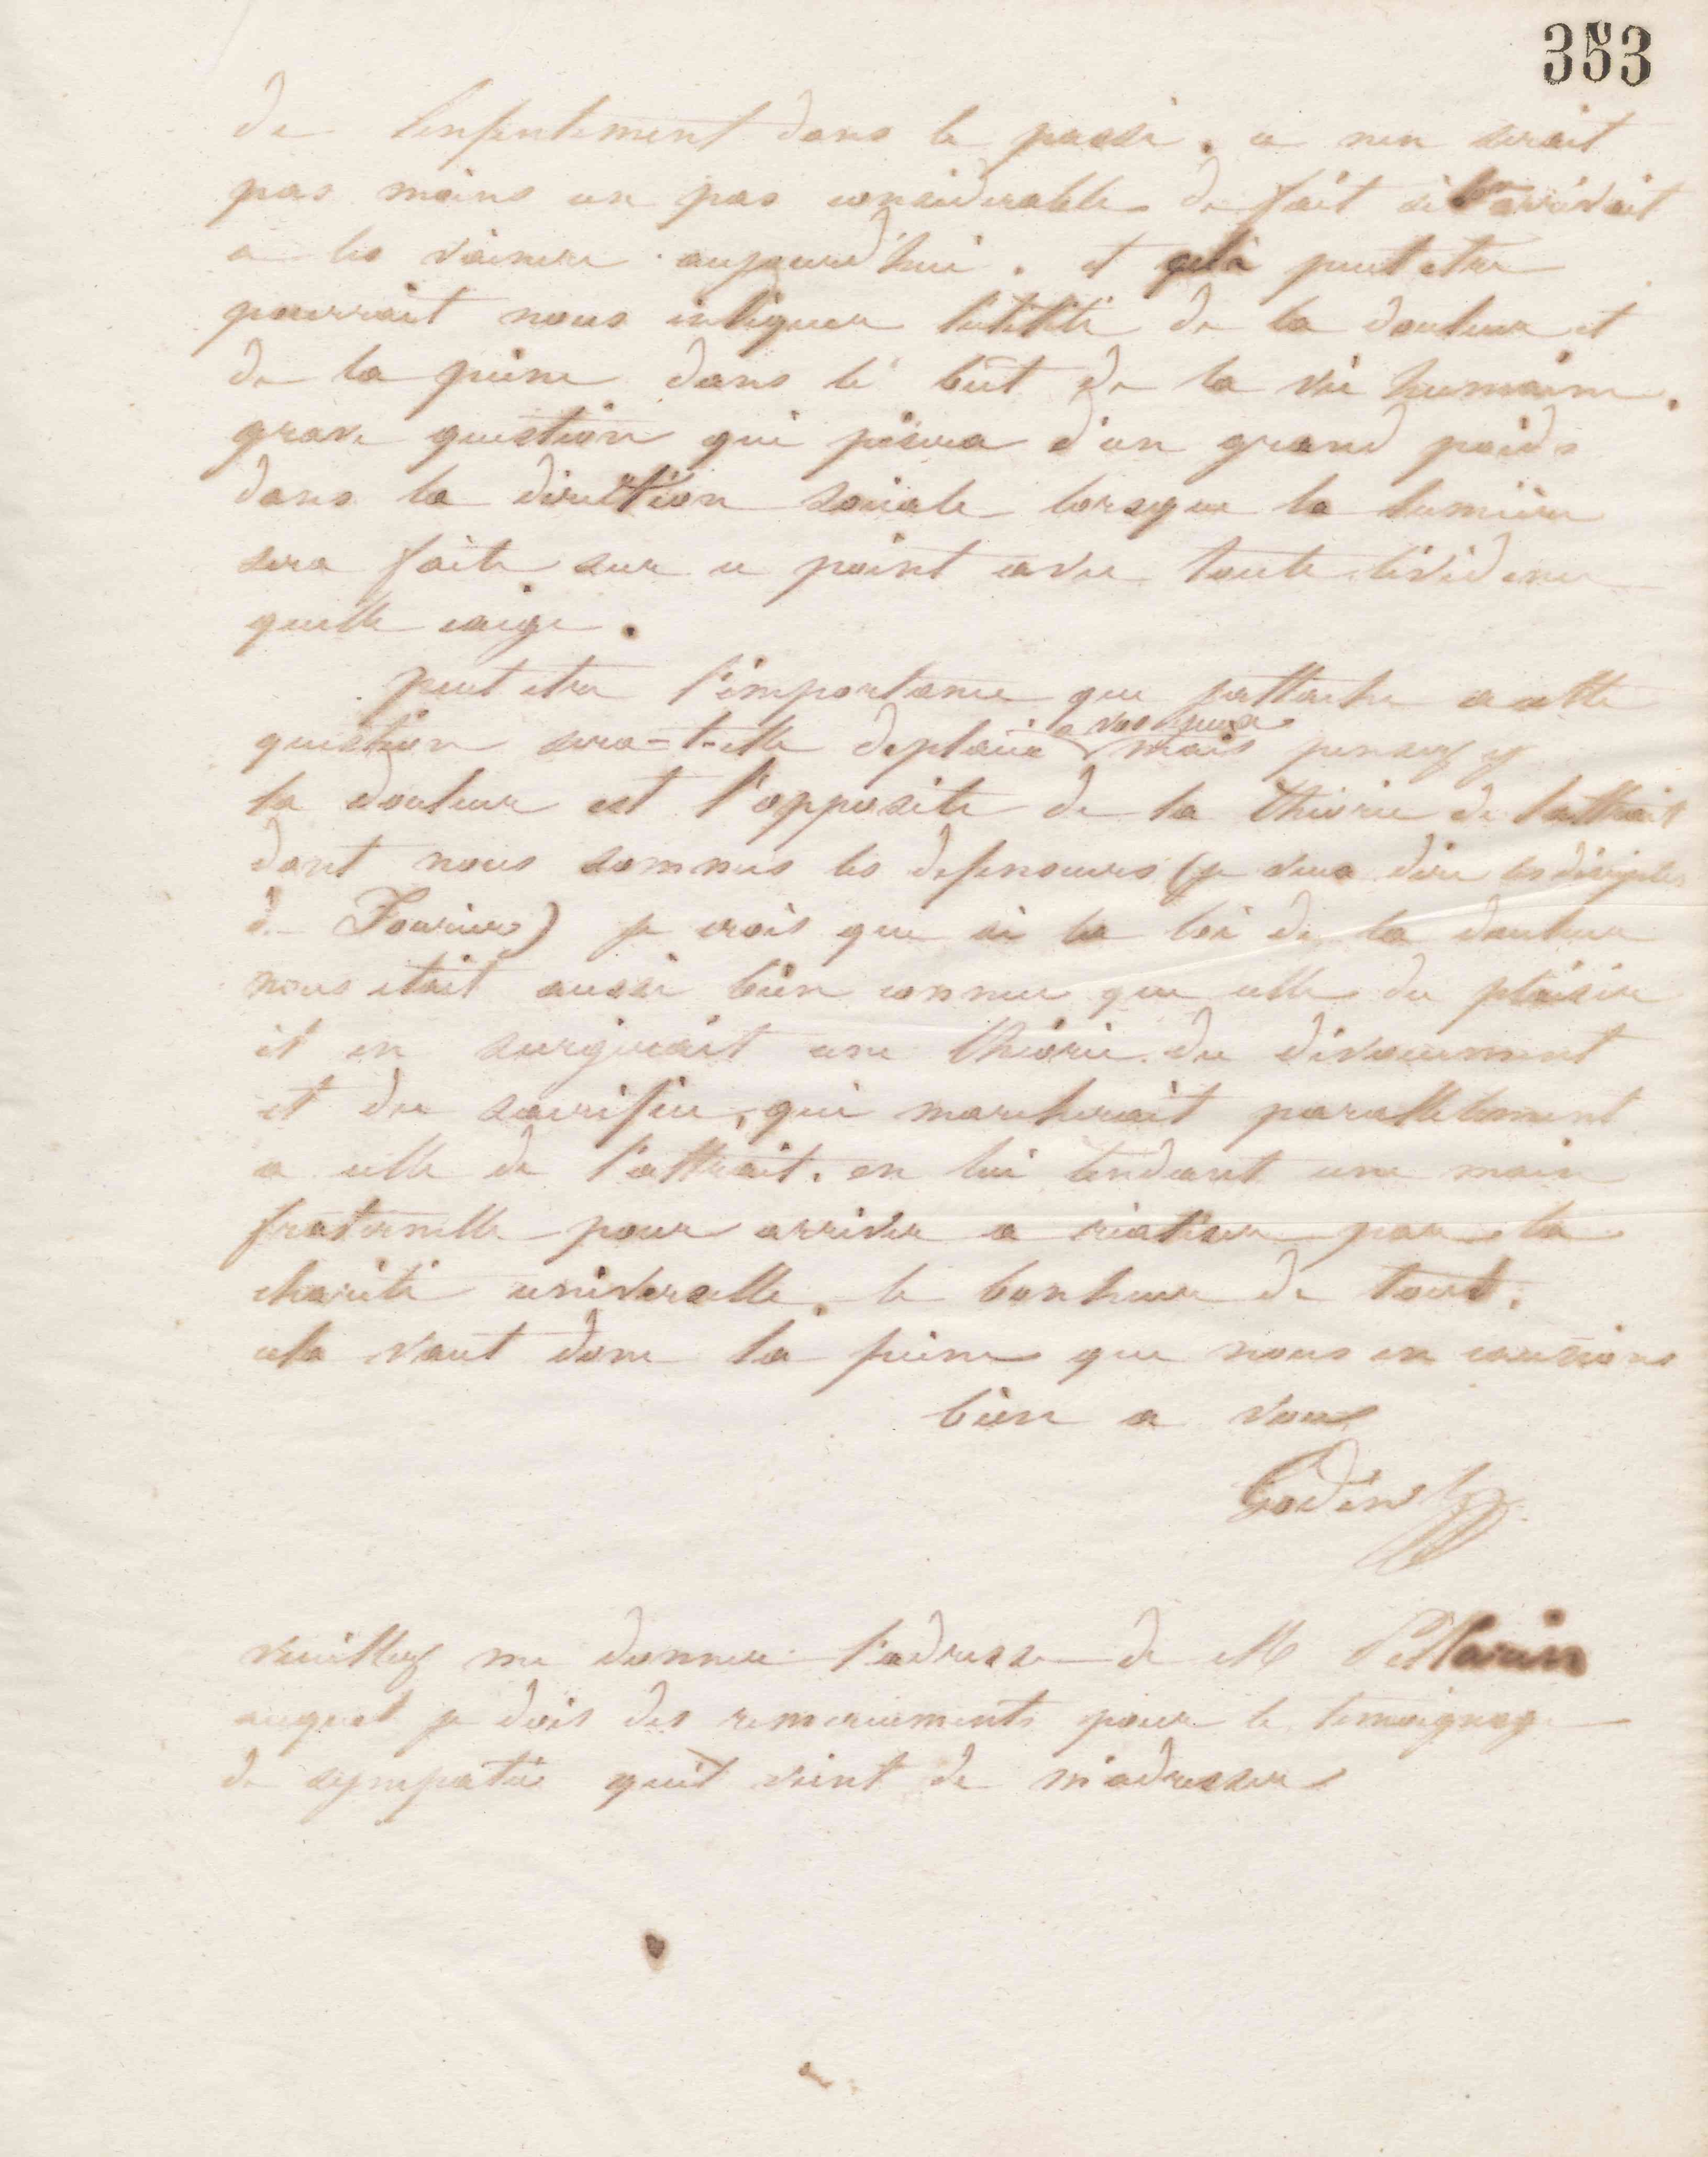 353
de lenfentement dans le passé. ce nen serait
pas moins un pas considerable de fait si l'on arrivait
a les vaincre aujourd'hui. et cela peut etre
pourrait nous indiquer lutilité de la douleur et
de la peine dans le but de la vie humaine.
grave question qui pesera d'un grand poids
dans la direction sociale lorsque la lumière
sera faite sur ce point avec toute lévidence
quelle exige.
peut etre l'importance que jattache a cette
question sera-t-elle deplacée a vos yeux mais pensez y
la douleur est l'opposite de la théorie de lattrait
dont nous sommes les defenseurs (je veux dire les disciples
de Fourier) je crois que si la loi de la douleur
nous etait aussi bien connue que celle du plaisir
il en surgirait une théorie du dévouement
et du sacrifice, qui marcherait parallelement
a celle de l'attrait. en lui tendant une main
fraternelle pour arriver a réaliser par la
charité universelle. le bonheur de tous.
cela vaut donc la peine que nous en causions
bien a vous
Godin
veuillez me donner l'adresse de M Pellarin
auquel je dois des remerciements pour le temoignage
de sympatie quil vient de m'adresser